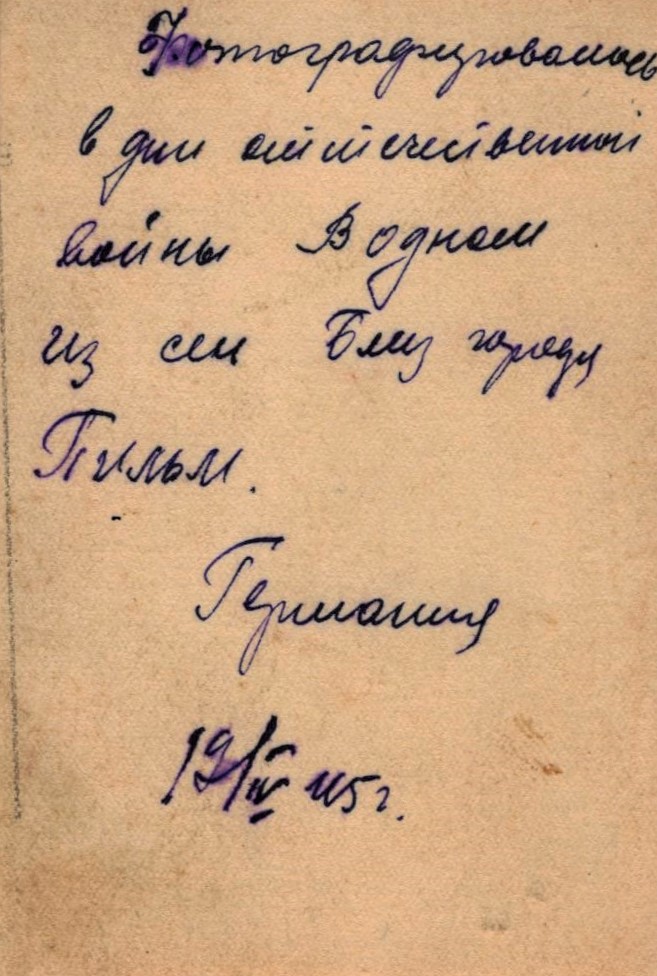 Фотографировались
в дни отитечественной
войны В одном
из сел Близ города
Пильм.
Германия
19/IV 45 г.